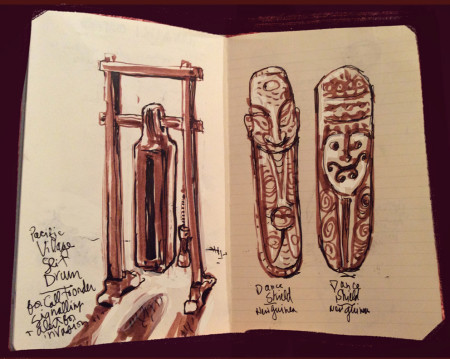 Pacific
Village
Slit
Drum
for Call
Signalling
+ alert for
invasion
Dance
Shield
New guinea
Dance
Shield
New guinea